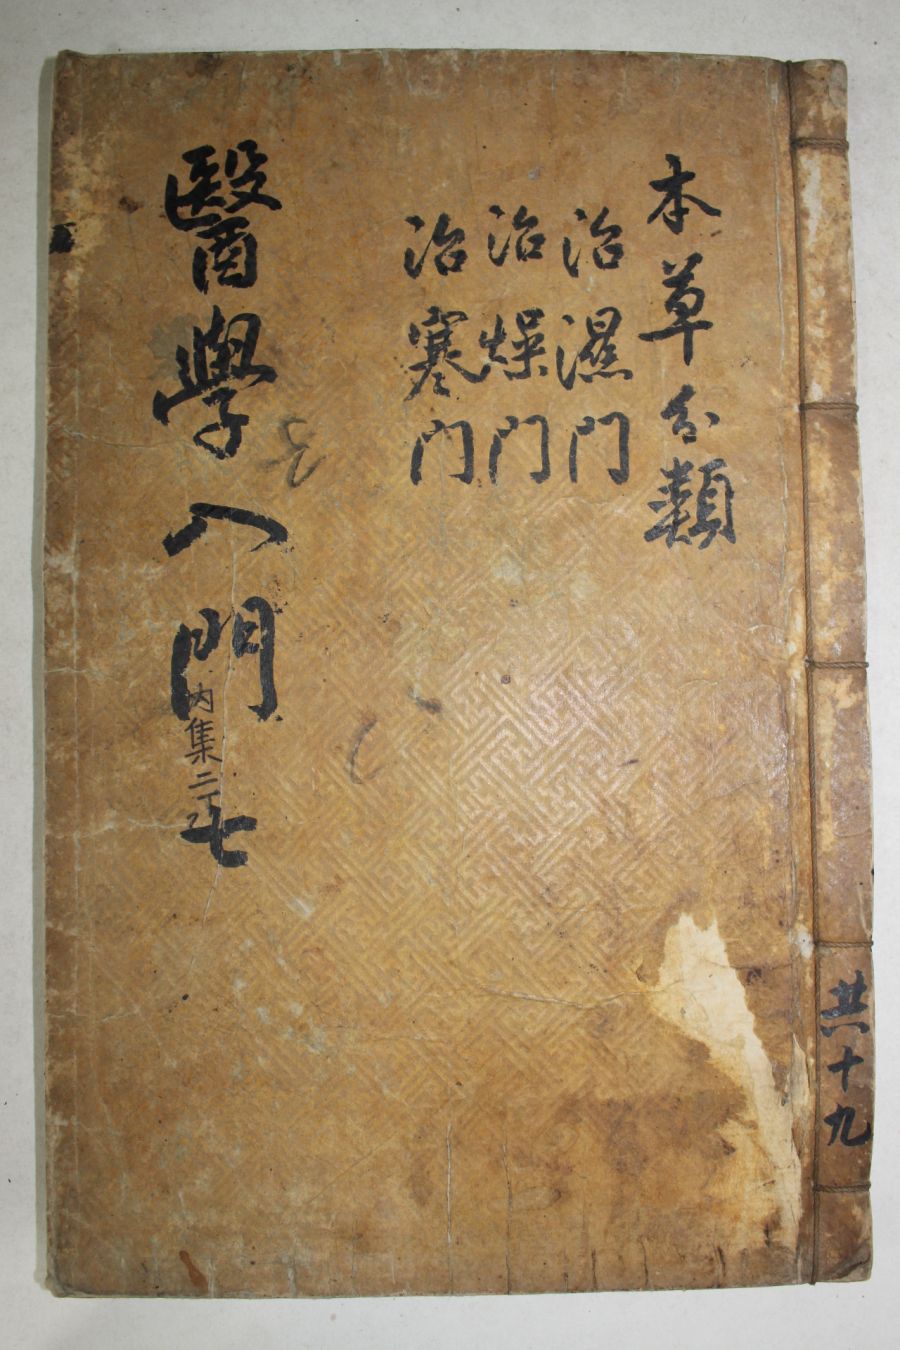 本草分類
治濕門
治燥門
治寒門
醫學入門 七
內集二
共十九